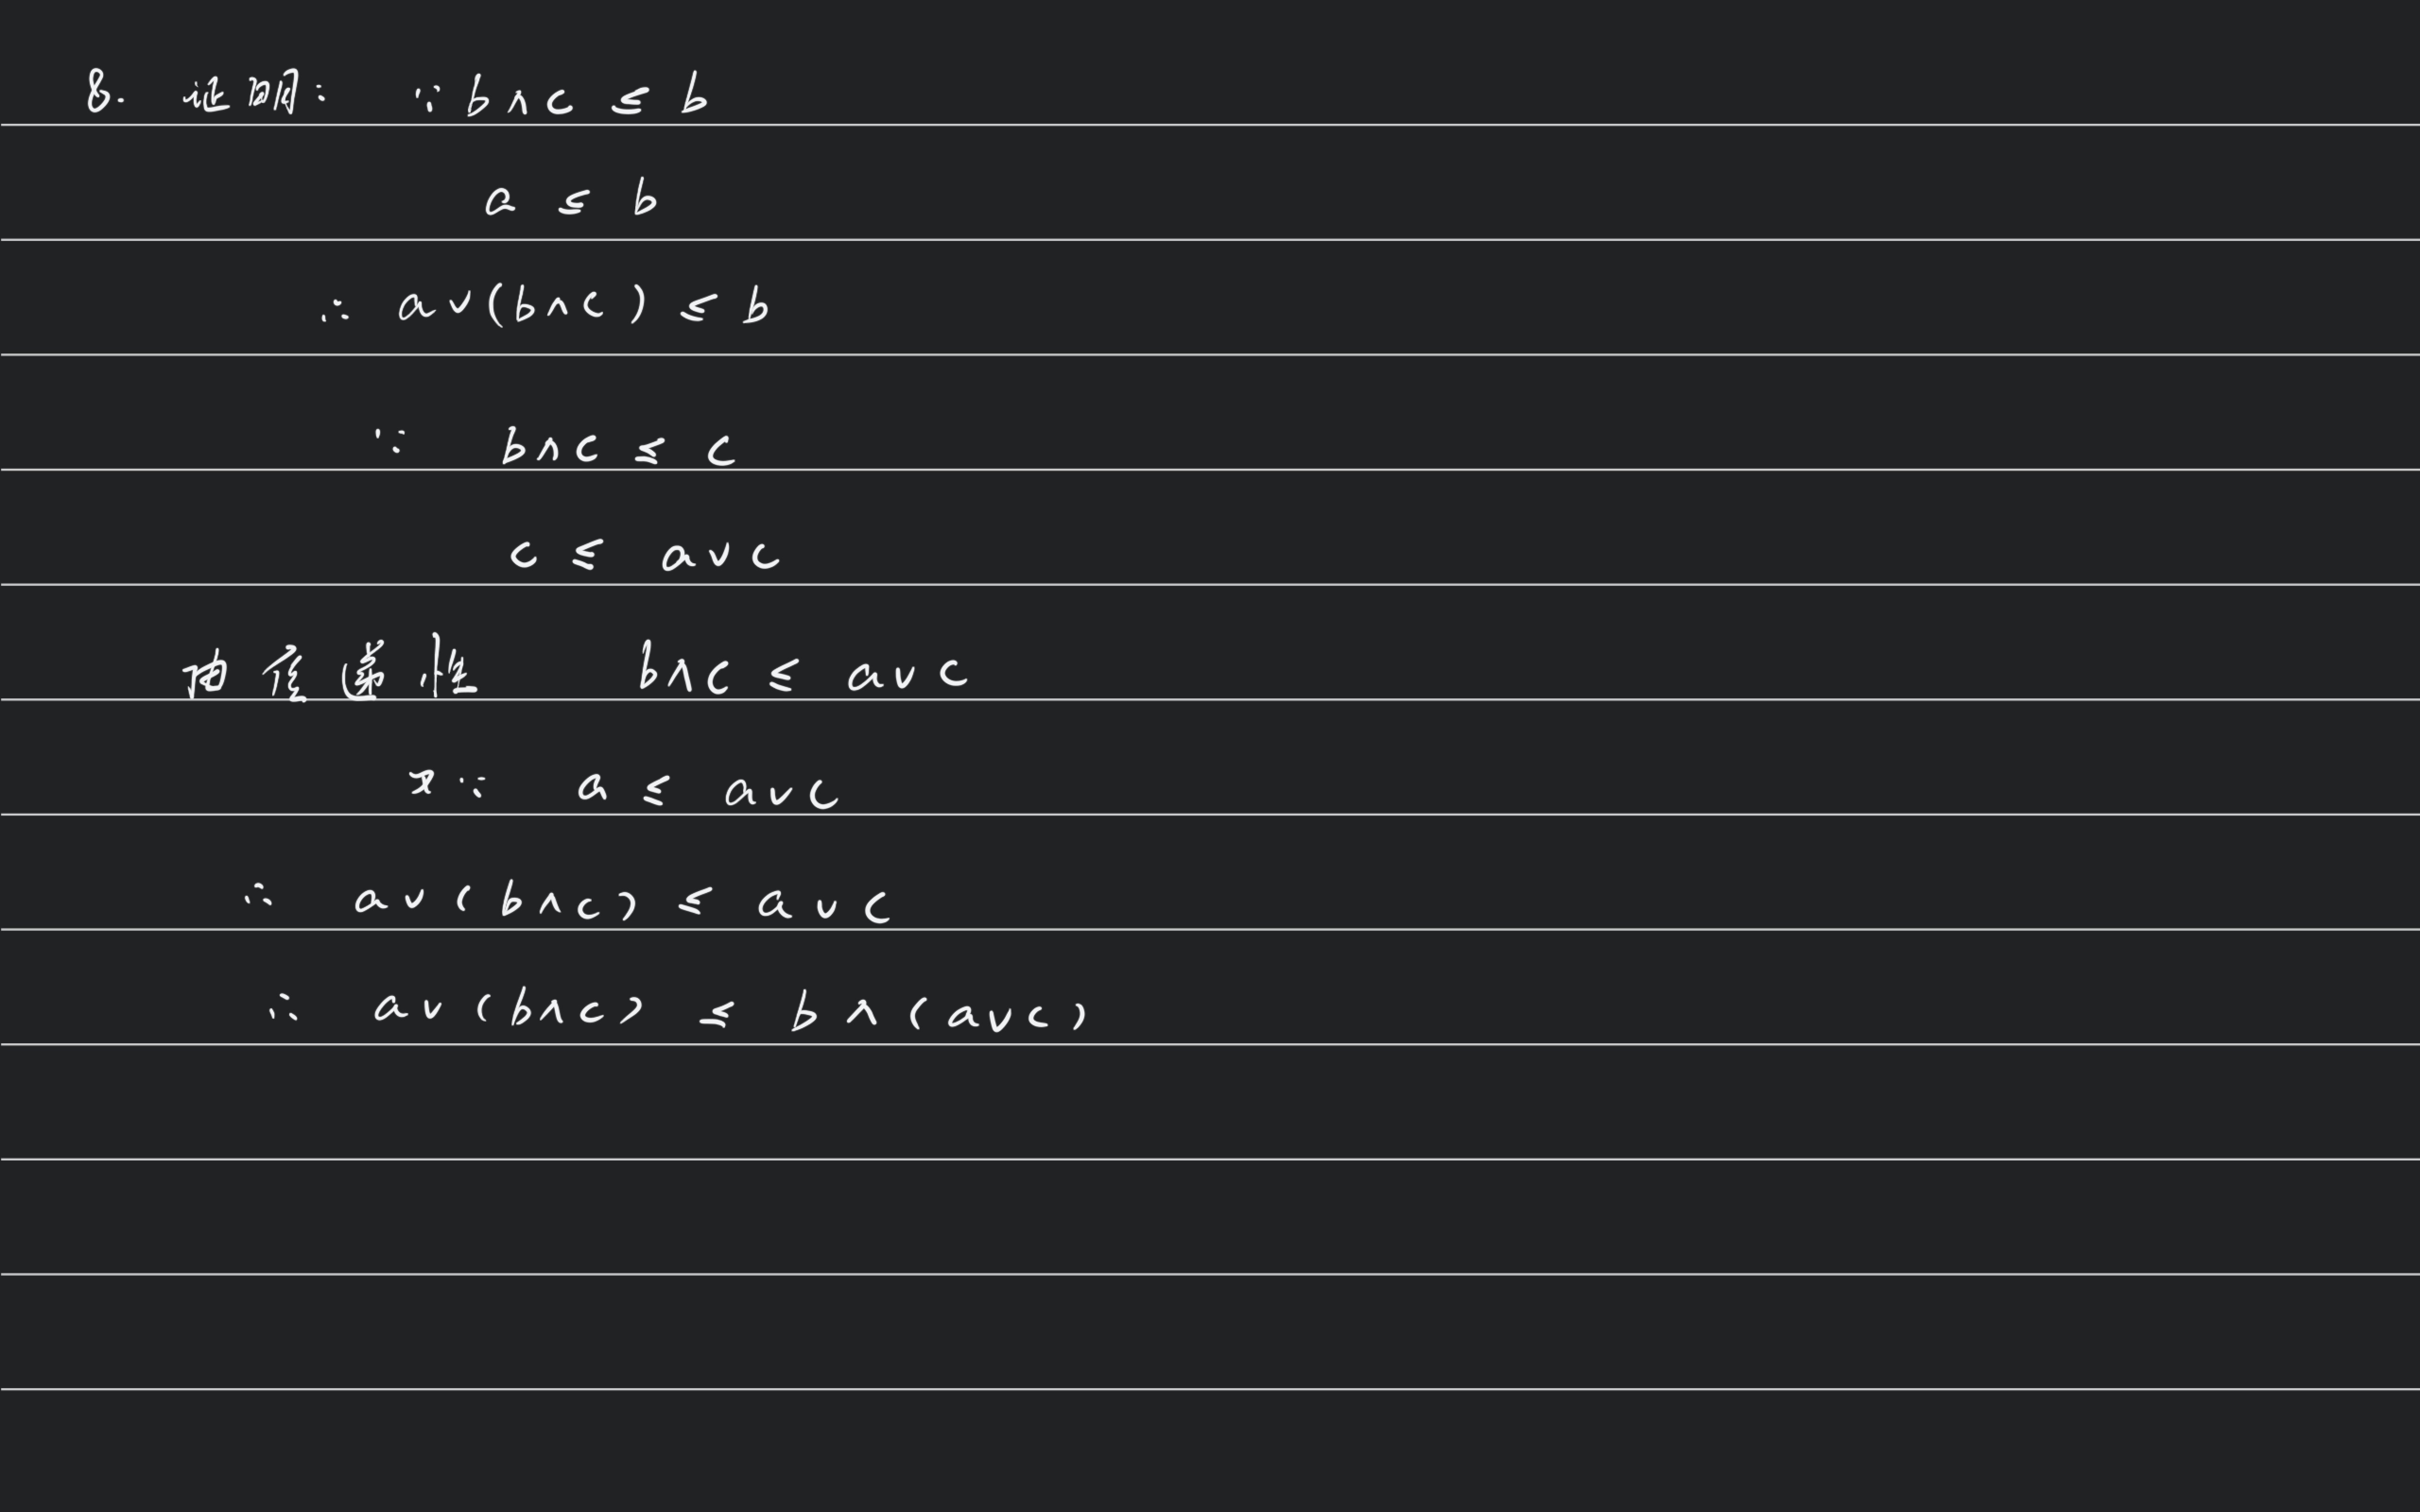 8. 证明: ∵ b∧c ≤ b
a ≤ b
∴ a∨(b∧c) ≤ b
∵ b∧c ≤ c
c ≤ a∨c
由传递性 b∧c ≤ a∨c
又∵ a ≤ a∨c
∴ a∨(b∧c) ≤ a∨c
∴ a∨(b∧c) ≤ b∧(a∨c)